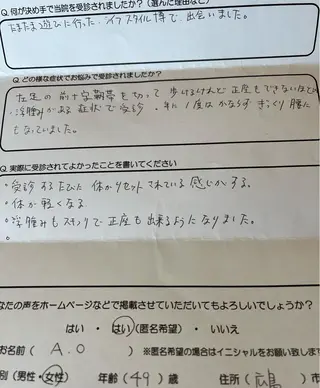 Q. 何が決め手で当院を受診されましたか?(選んだ理由など)
たまたま遊びに行った、ライフスタイル博で、出会いました。
Q. どの様な症状でお悩みで受診されましたか?
左足の前十字靭帯を切って 歩けるけれど 正座もできないほどの
浮腫みがある症状で受診、年に1度はかならず ぎっくり腰に
もなっていました。
Q. 実際に受診されてよかったことを書いてください
・受診するたびに 体がリセットされている感じがする。
・体が軽くなる
・浮腫みもスッキリで正座も出来るようになりました。
なたの声をホームページなどで掲載させていただいてもよろしいでしょうか?
はい ・ はい(匿名希望) ・ いいえ
お名前( A.O ) ※匿名希望の場合はイニシャルをお願い致します
別(男性・女性) 年齢(49)歳 住所(広島)市